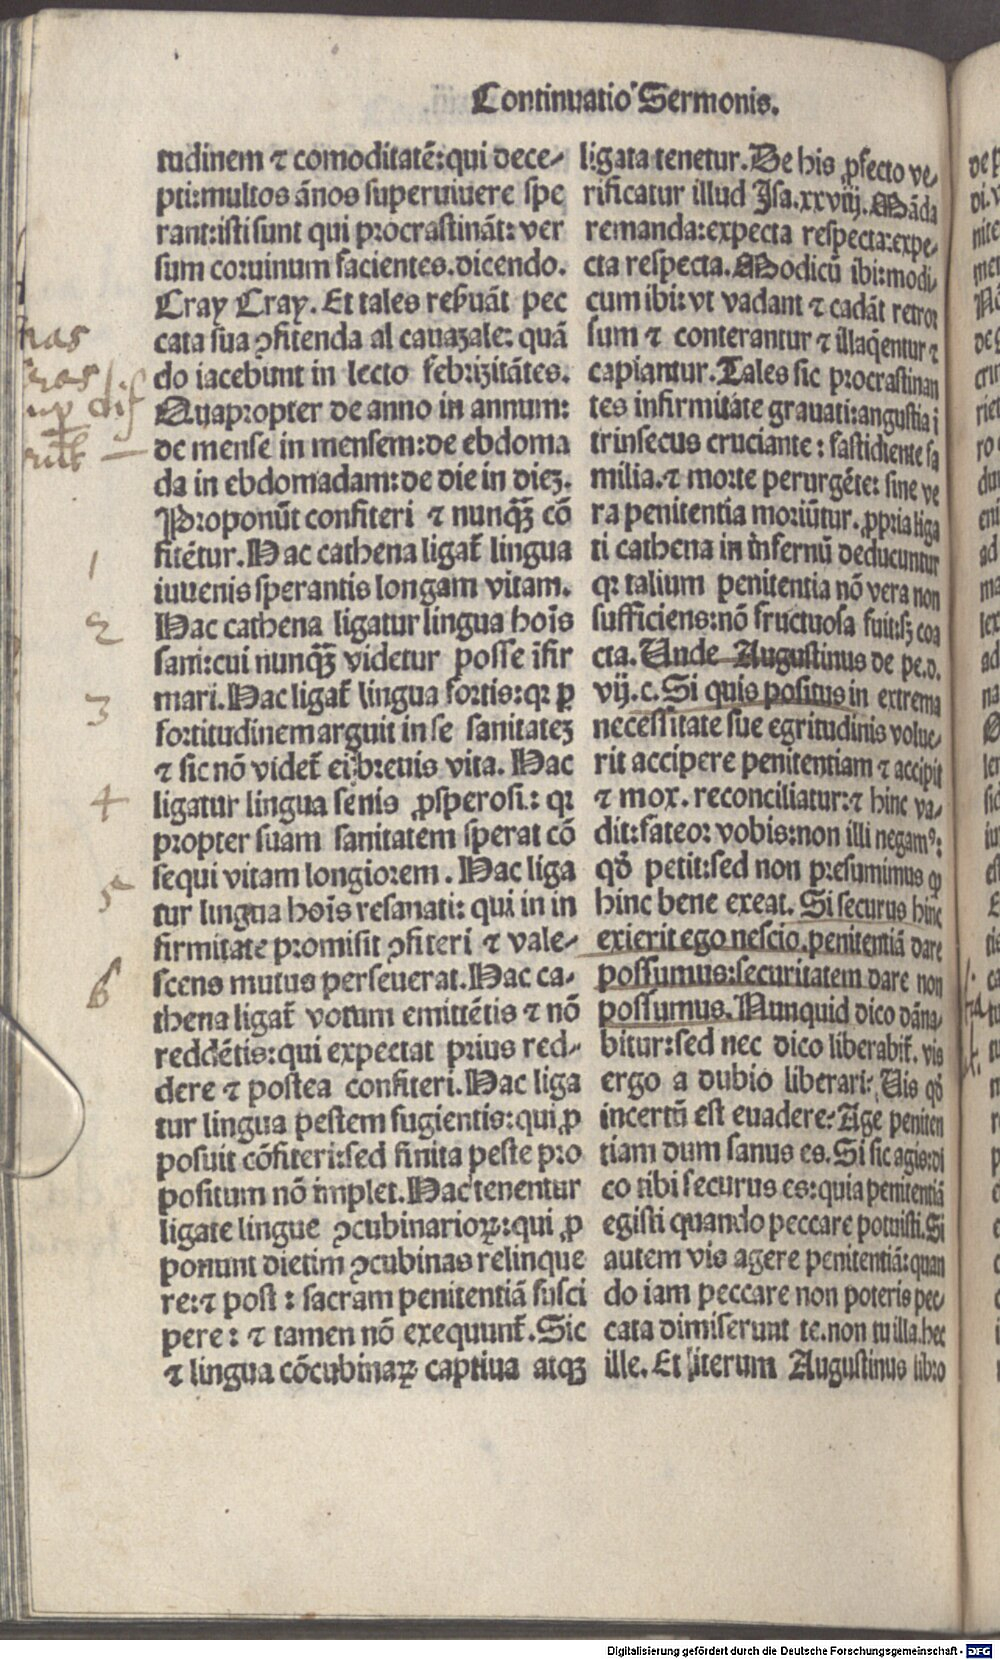 Continuatio Sermonis.
tudinem ⁊ comoditatē: qui dece-
pti: multos ānos superuiuere spe
rant: isti sunt qui procrastināt: ver
sum coruinum facientes. dicendo.
Cray Cray. Et tales reẜuāt pec
cata sua ꝯfitenda al cauazale: quā
do iacebunt in lecto febrizitātes.
Quapropter de anno in annum:
de mense in mensem: de ebdoma
da in ebdomadam: de die in dieꝫ.
Proponūt confiteri ⁊ nunqꝫ̄ cō
fitētur. Hac cathena ligat᷑ lingua
iuuenis sperantis longam vitam.
Hac cathena ligatur lingua hoīs
sani: cui nunqꝫ̄ videtur posse īfir
mari. Hac ligat᷑ lingua fortis: qꝛ ꝑ
fortitudinem arguit in se sanitateꝫ
⁊ sic nō videt᷑ ei breuis vita. Hac
ligatur lingua senis ꝓsperosi.: qꝛ
propter suam sanitatem sperat cō
sequi vitam longiorem. Hac liga
tur lingua hoīs resanati: qui in in
firmitate promisit ꝯfiteri ⁊ vale-
scens mutus perseuerat. Hac ca-
thena ligat᷑ votum emittētis ⁊ nō
reddētis: qui expectat prius red-
dere ⁊ postea confiteri. Hac liga
tur lingua pestem fugientis: qui ꝓ
posuit cōfiteri: sed finita peste pro
positum nō implet. Hac tenentur
ligate lingue ꝯcubinarioꝝ: qui ꝓ
ponunt dietim ꝯcubinas relinque
re: ⁊ post : sacram penitentiā susci
pere: ⁊ tamen nō exequunt᷑. Sic
⁊ lingua cōcubinaꝝ captiua atqꝫ
ligata tenetur. De his ꝓfecto ve-
rificatur illud Isa. xxviij. Māda
remanda: expecta respecta: expe-
cta respecta. Modicū ibi: modi-
cum ibi: vt vadant ⁊ cadāt retror
sum ⁊ conterantur ⁊ illaq̄entur ⁊
capiantur. Tales sic procrastinan
tes infirmitate grauati: angustia ī
trinsecus cruciante: fastidiente fa
milia. ⁊ morte perurgēte: sine ve
ra penitentia moriūtur. ꝓpria liga
ti cathena in infernū deducuntur
qꝛ talium penitentia nō vera non
sufficiens: nō fructuosa fuit: sꝫ coa
cta. Unde Augustinus de pe. d.
vij. c. Si quis positus in extrema
necessitate sue egritudinis volue-
rit accipere penitentiam ⁊ accipit
⁊ mox. reconciliatur: ⁊ hinc va-
dit: fateor vobis: non illi negamꝰ:
qđ petit: sed non presumimus ꝙ
hinc bene exeat. Si securus hinc
exierit ego nescio. penitentiā dare
possumus: securitatem dare non
possumus. Nunquid dico dāna-
bitur: sed nec dico liberabit᷑. vis
ergo a dubio liberari: Uis qđ
incertū est euadere: Age peniten
tiam dum sanus es. Si sic agis: di
co tibi securus es: quia penitentiā
egisti quando peccare potuisti. Si
autem vis agere penitentiā: quan
do iam peccare non poteris pec-
cata dimiserunt te. non tu illa. hec
ille. Et iterum Augustinus libro
1
2
3
4
5
6
Digitalisierung gefördert durch die Deutsche Forschungsgemeinschaft - DFG